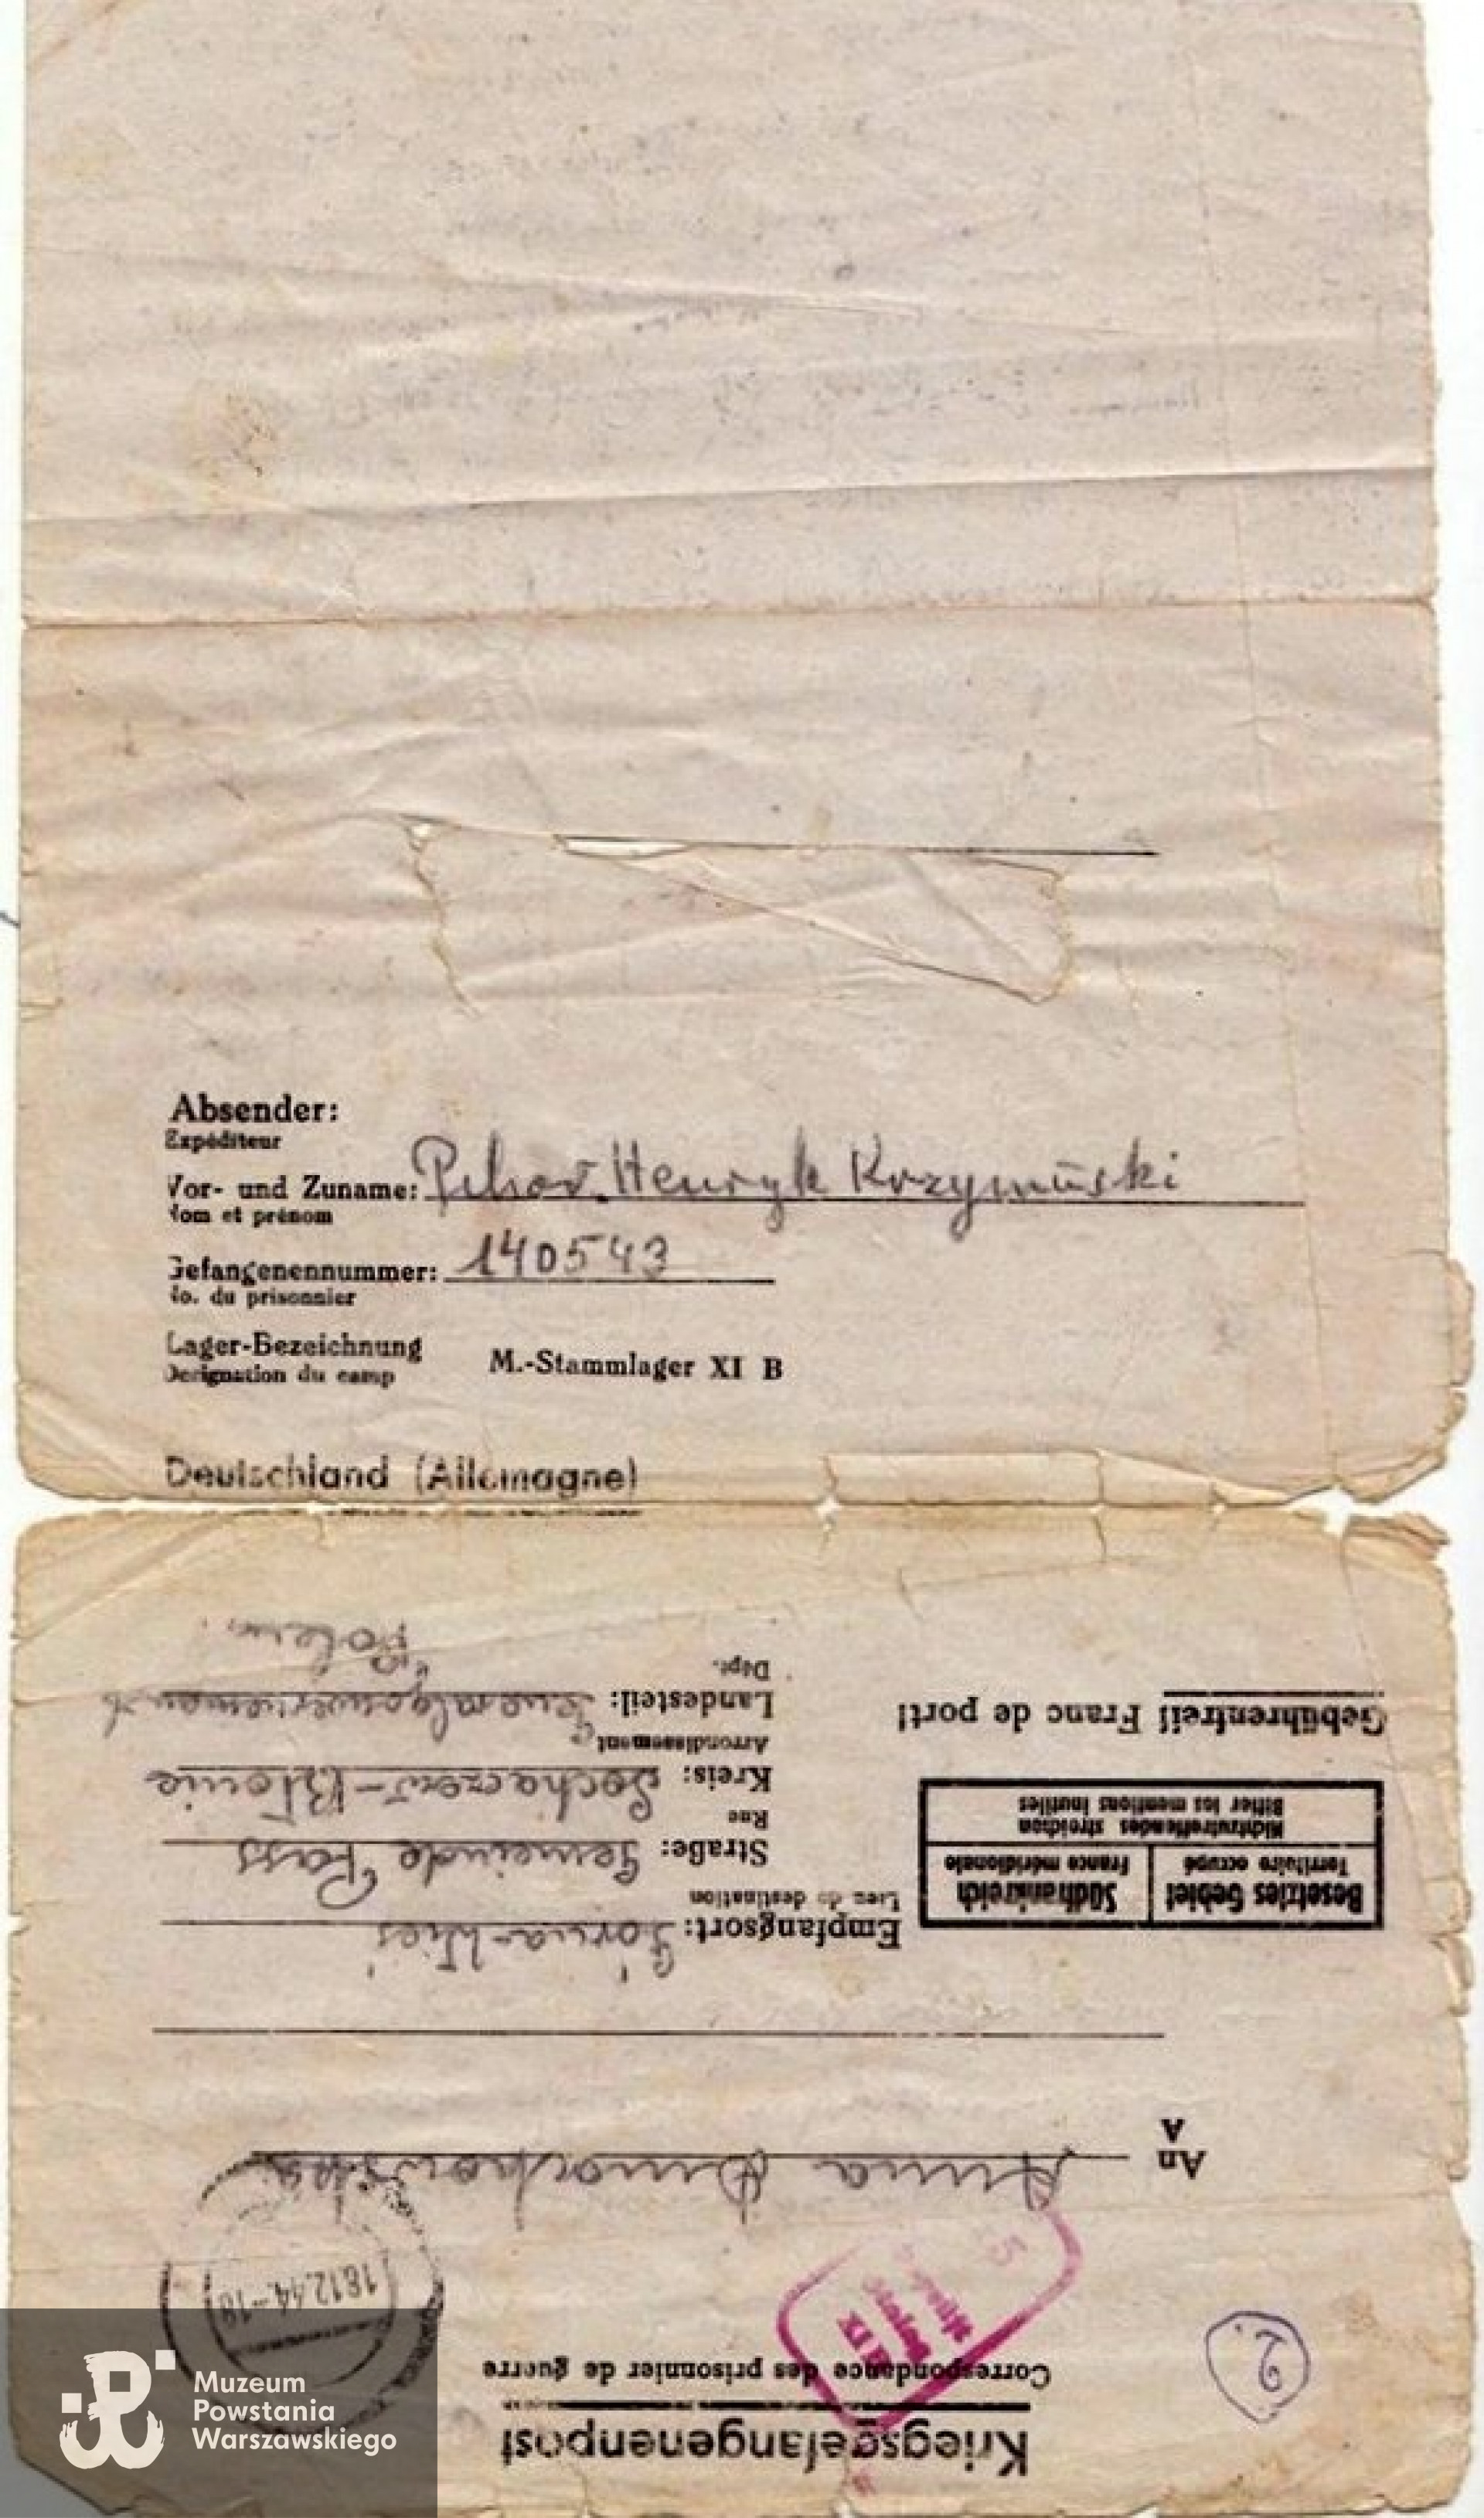 Absender:
Expéditeur
Vor- und Zuname: Pchor. Henryk Krzymuski
Nom et prénom
Gefangenennummer: 140543
No. du prisonnier
Lager-Bezeichnung M.-Stammlager XI B
Designation du camp
Deutschland (Allemagne)
Kriegsgefangenenpost
Correspondance des prisonnier de guerre
2.
18.12.44.-18
An Anna
A
Empfangsort:
Lieu de destination
Straße: Gemeinde Pass
Rue
Kreis: Sochaczew-Błonie
Arrondissement
Landesteil: Generalgouvernement
Dépt.
Polen.
Besetztes Gebiet
Territoire occupé
Südfrankreich
France méridionale
Nichtzutreffendes streichen
Biffer les mentions inutiles
Gebührenfrei! Franc de port!
Stalag
XI B
5
Muzeum
Powstania
Warszawskiego